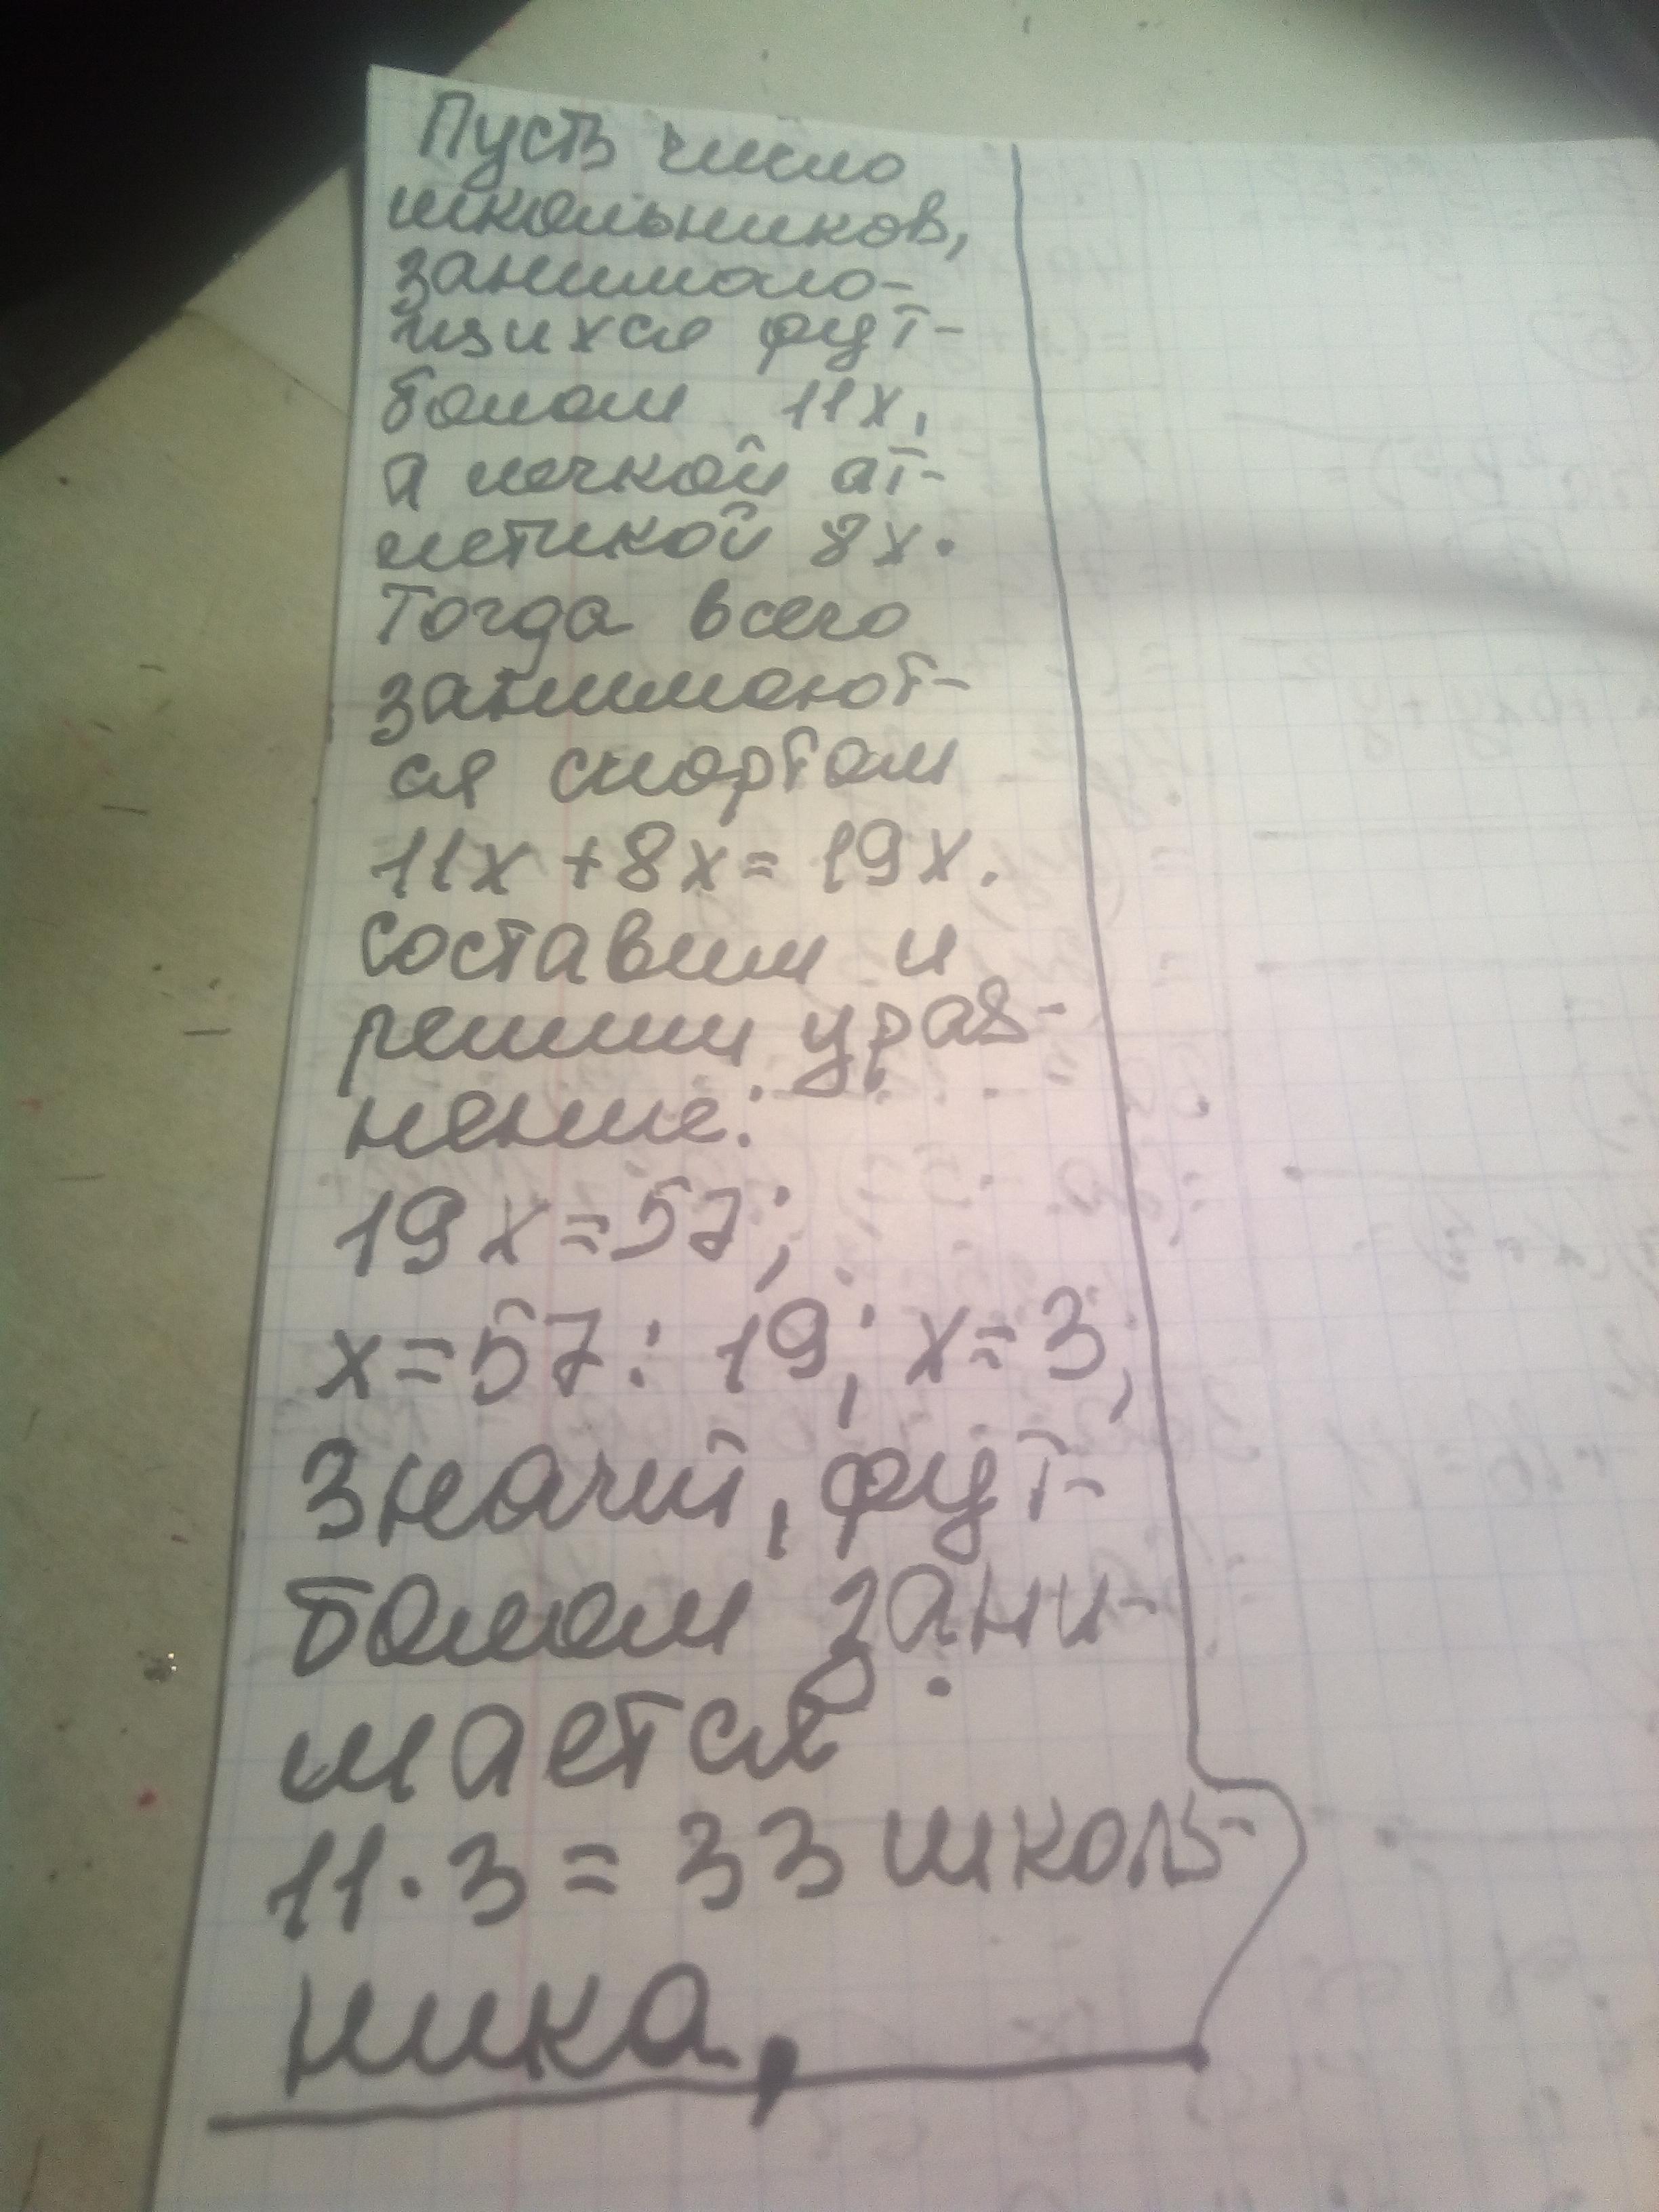 Пусть число
школьников,
занимаю-
щихся фут-
болом 11x,
а легкой ат-
летикой 8x.
Тогда всего
занимают-
ся спортом
11x + 8x = 19x.
Составим и
решим урав-
нение:
19x = 57;
x = 57 : 19; x = 3;
Значит, фут-
болом зани-
мается
11 · 3 = 33 школь-
ника,